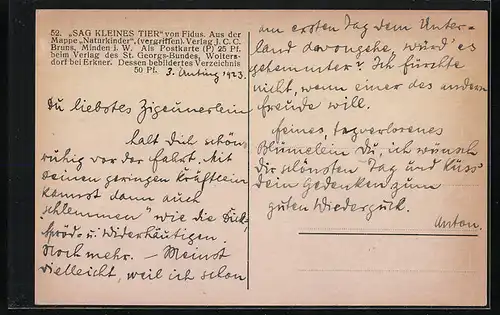 52. „SAG KLEINES TIER“ von Fidus. Aus der
Mappe „Naturkinder“, (vergriffen) Verlag J. C. C.
Bruns, Minden i. W. Als Postkarte (P) 25 Pf.
beim Verlag des St. Georgs-Bundes, Wolters-
dorf bei Erkner. Dessen bebildertes Verzeichnis
50 Pf.
3. 1923.
Du liebstes Zigeunerlein
halt Dich schön
ruhig vor der Fahrt. Mit
deinen geringen Kräftlein
kannst dann auch
„schlemmen“ wie die Dick,
Spröde u. Widerhäutigen.
Noch mehr. — Meinst
vielleicht, weil ich schon
am ersten Tag dem Unter-
land davongehe, würd' es
gehemmter? Ich fürchte
nicht, wenn einer des andern
Freude will.
Feines, tagverlorenes
Blümelein Du, ich wünsch
Dir schönsten Tag und küss'
Dein Gedenken zum
guten Wiederguck.
Anton.